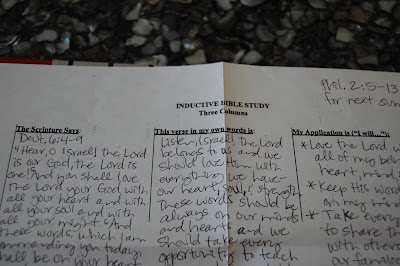 Phil. 2:5-13
for next sun
INDUCTIVE BIBLE STUDY
Three Columns
The Scripture Says:
Deut. 6:4-9
"Hear, O Israel! the Lord
is our God, the Lord is
one! And you shall love
the Lord your God with
all your heart and with
all your soul and with
all your might. And
these words, which I am
commanding you today,
shall be on your heart
This verse in my own words is:
Listen, Israel, the Lord
belongs to us and we
should love Him with
everything we have-
our heart, soul, & strength
These words should be
always on our minds
and heart and we
should take every
opportunity to teach
My Application is ("I will..."):
* Love the Lord w
all of my bei
heart, mind,
* Keep His Word
on my mind
* Take every
to share th
with others
our familie